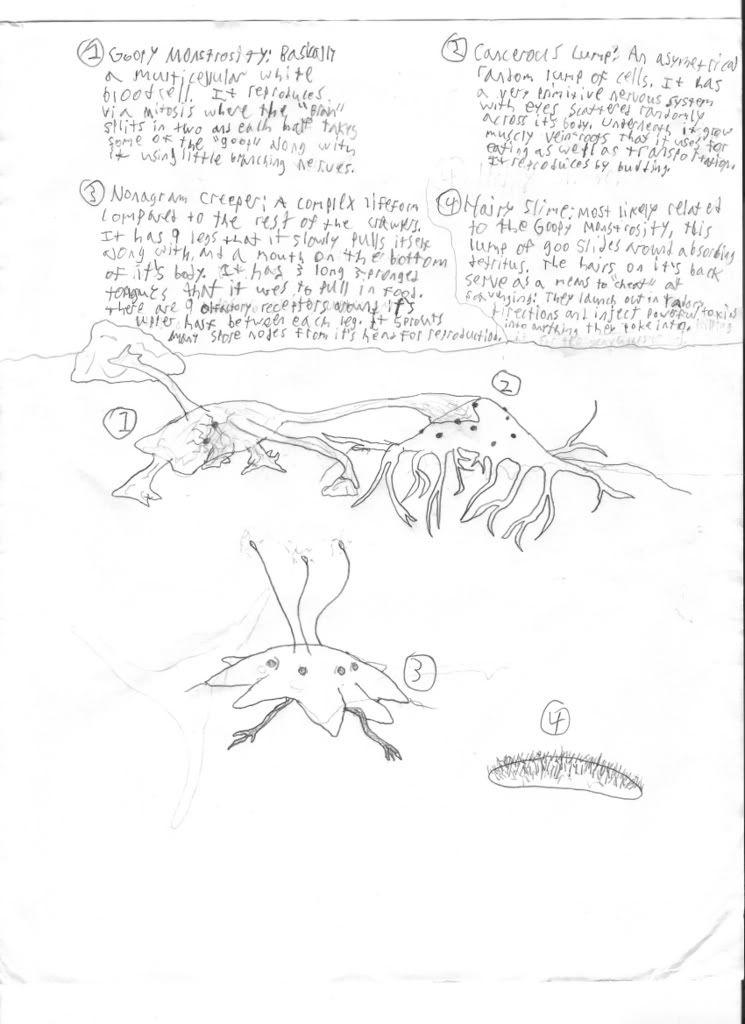 1 Goopy Monstrosity: Basically
a multicellular white
blood cell. It reproduces
via mitosis where the "Brain"
splits in two and each half takes
some of the "goop" along with
it using little branching nerves.
2 Cancerous Lump: An asymetrical
random lump of cells. It has
a very primitive nervous system
with eyes scattered randomly
across it's body. Underneath it grow
muscly vein-roots that it uses for
eating as well as transportation.
It reproduces by budding.
3 Nonagram Creeper: A complex lifeform
compared to the rest of the crawlers.
It has 9 legs that it slowly pulls itself
along with, and a mouth on the bottom
of it's body. It has 3 long 3-pronged
tongues that it uses to pull in food.
There are 9 olfactory receptors around it's
upper half between each leg. It sprouts
many spore nodes from it's head for reproduction.
4 Hairy Slime: Most likely related
to the Goopy Monstrosity, this
lump of goo slides around absorbing
detritus. The hairs on it's back
serve as a means to "cheat" at
scavenging: They launch out in random
directions and inject powerful toxins
into anything they poke into,
1
2
3
4